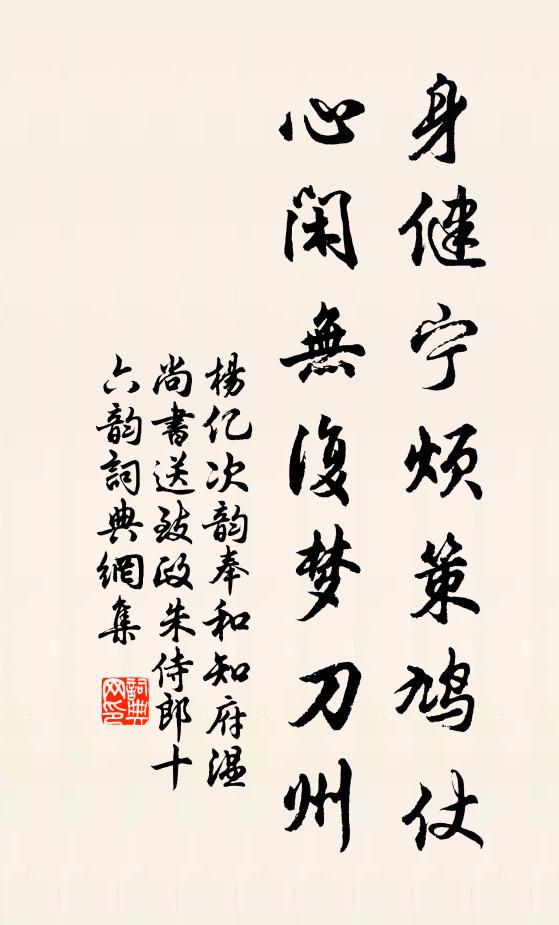 身健宁烦策鸠仗
心闲無復梦刀州
楊亿次韵奉和知府温
尚書送致政朱侍郎十
六韵詞典網集
詞典
网印